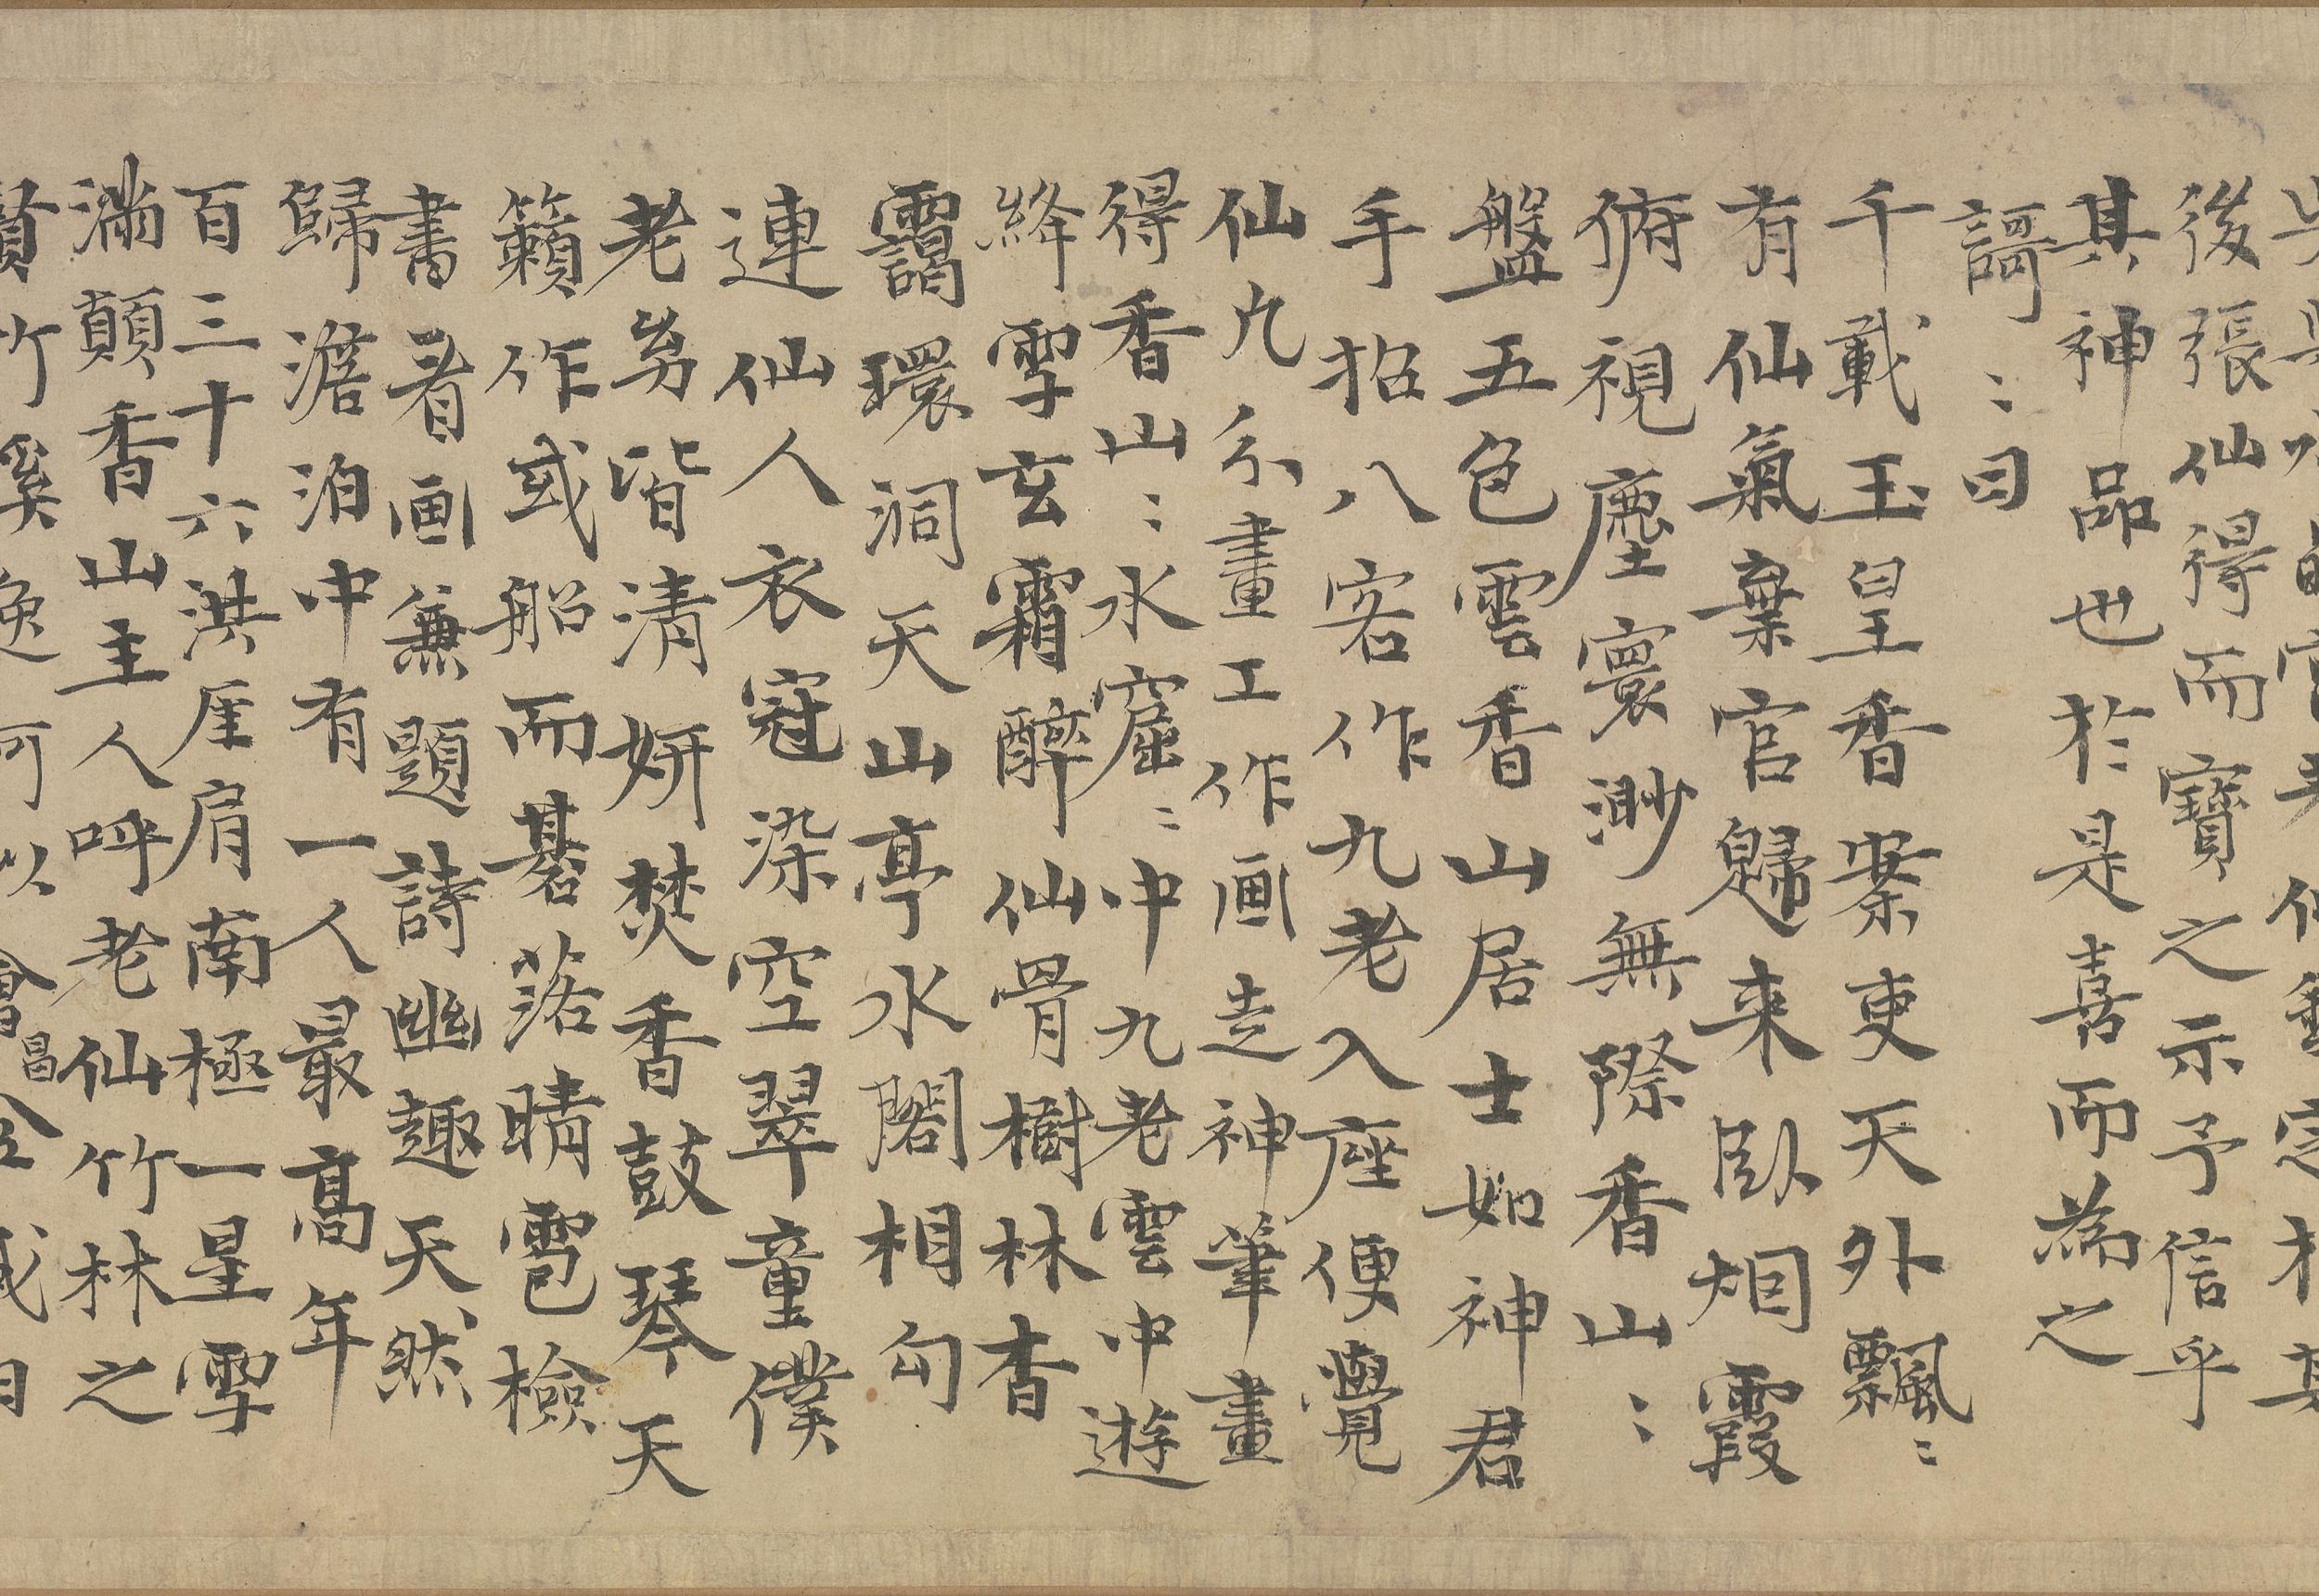 後張仙得而寶之示予信乎
其神品也於是喜而為之
謌〻曰
千載玉皇香案吏天外飄〻
有仙氣棄官歸来臥烟霞
俯視塵寰渺無際香山〻
盤五色雲香山居士如神君
手招八客作九老入座便覺
仙凢分畫工作画走神筆畫
得香山〻水窟〻中九老雲中遊
絳雪玄霜醉仙骨樹林杳
靄環洞天山亭水閣相勾
連仙人衣冠染空翠童僕
老幼皆清妍焚香鼓琴天
籟作或船而碁落晴雹檢
書看画兼題詩幽趣天然
歸澹泊中有一人最高年
百三十六洪厓肩南極一星雪
滿顛香山主人呼老仙竹林之
賢竹溪逸